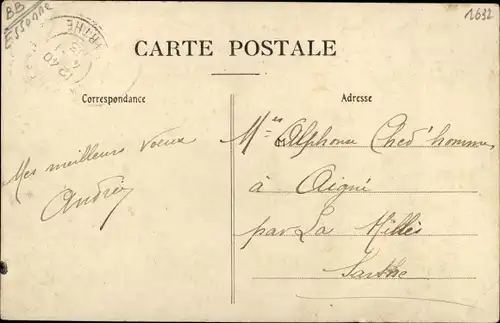 BB
Essonne
1632
12 40
CARTE POSTALE
Correspondance
Adresse
Mes meilleurs voeux
Andrée
Alphonse Ched'hommes
à Aigné
par La Milles
Sarthe